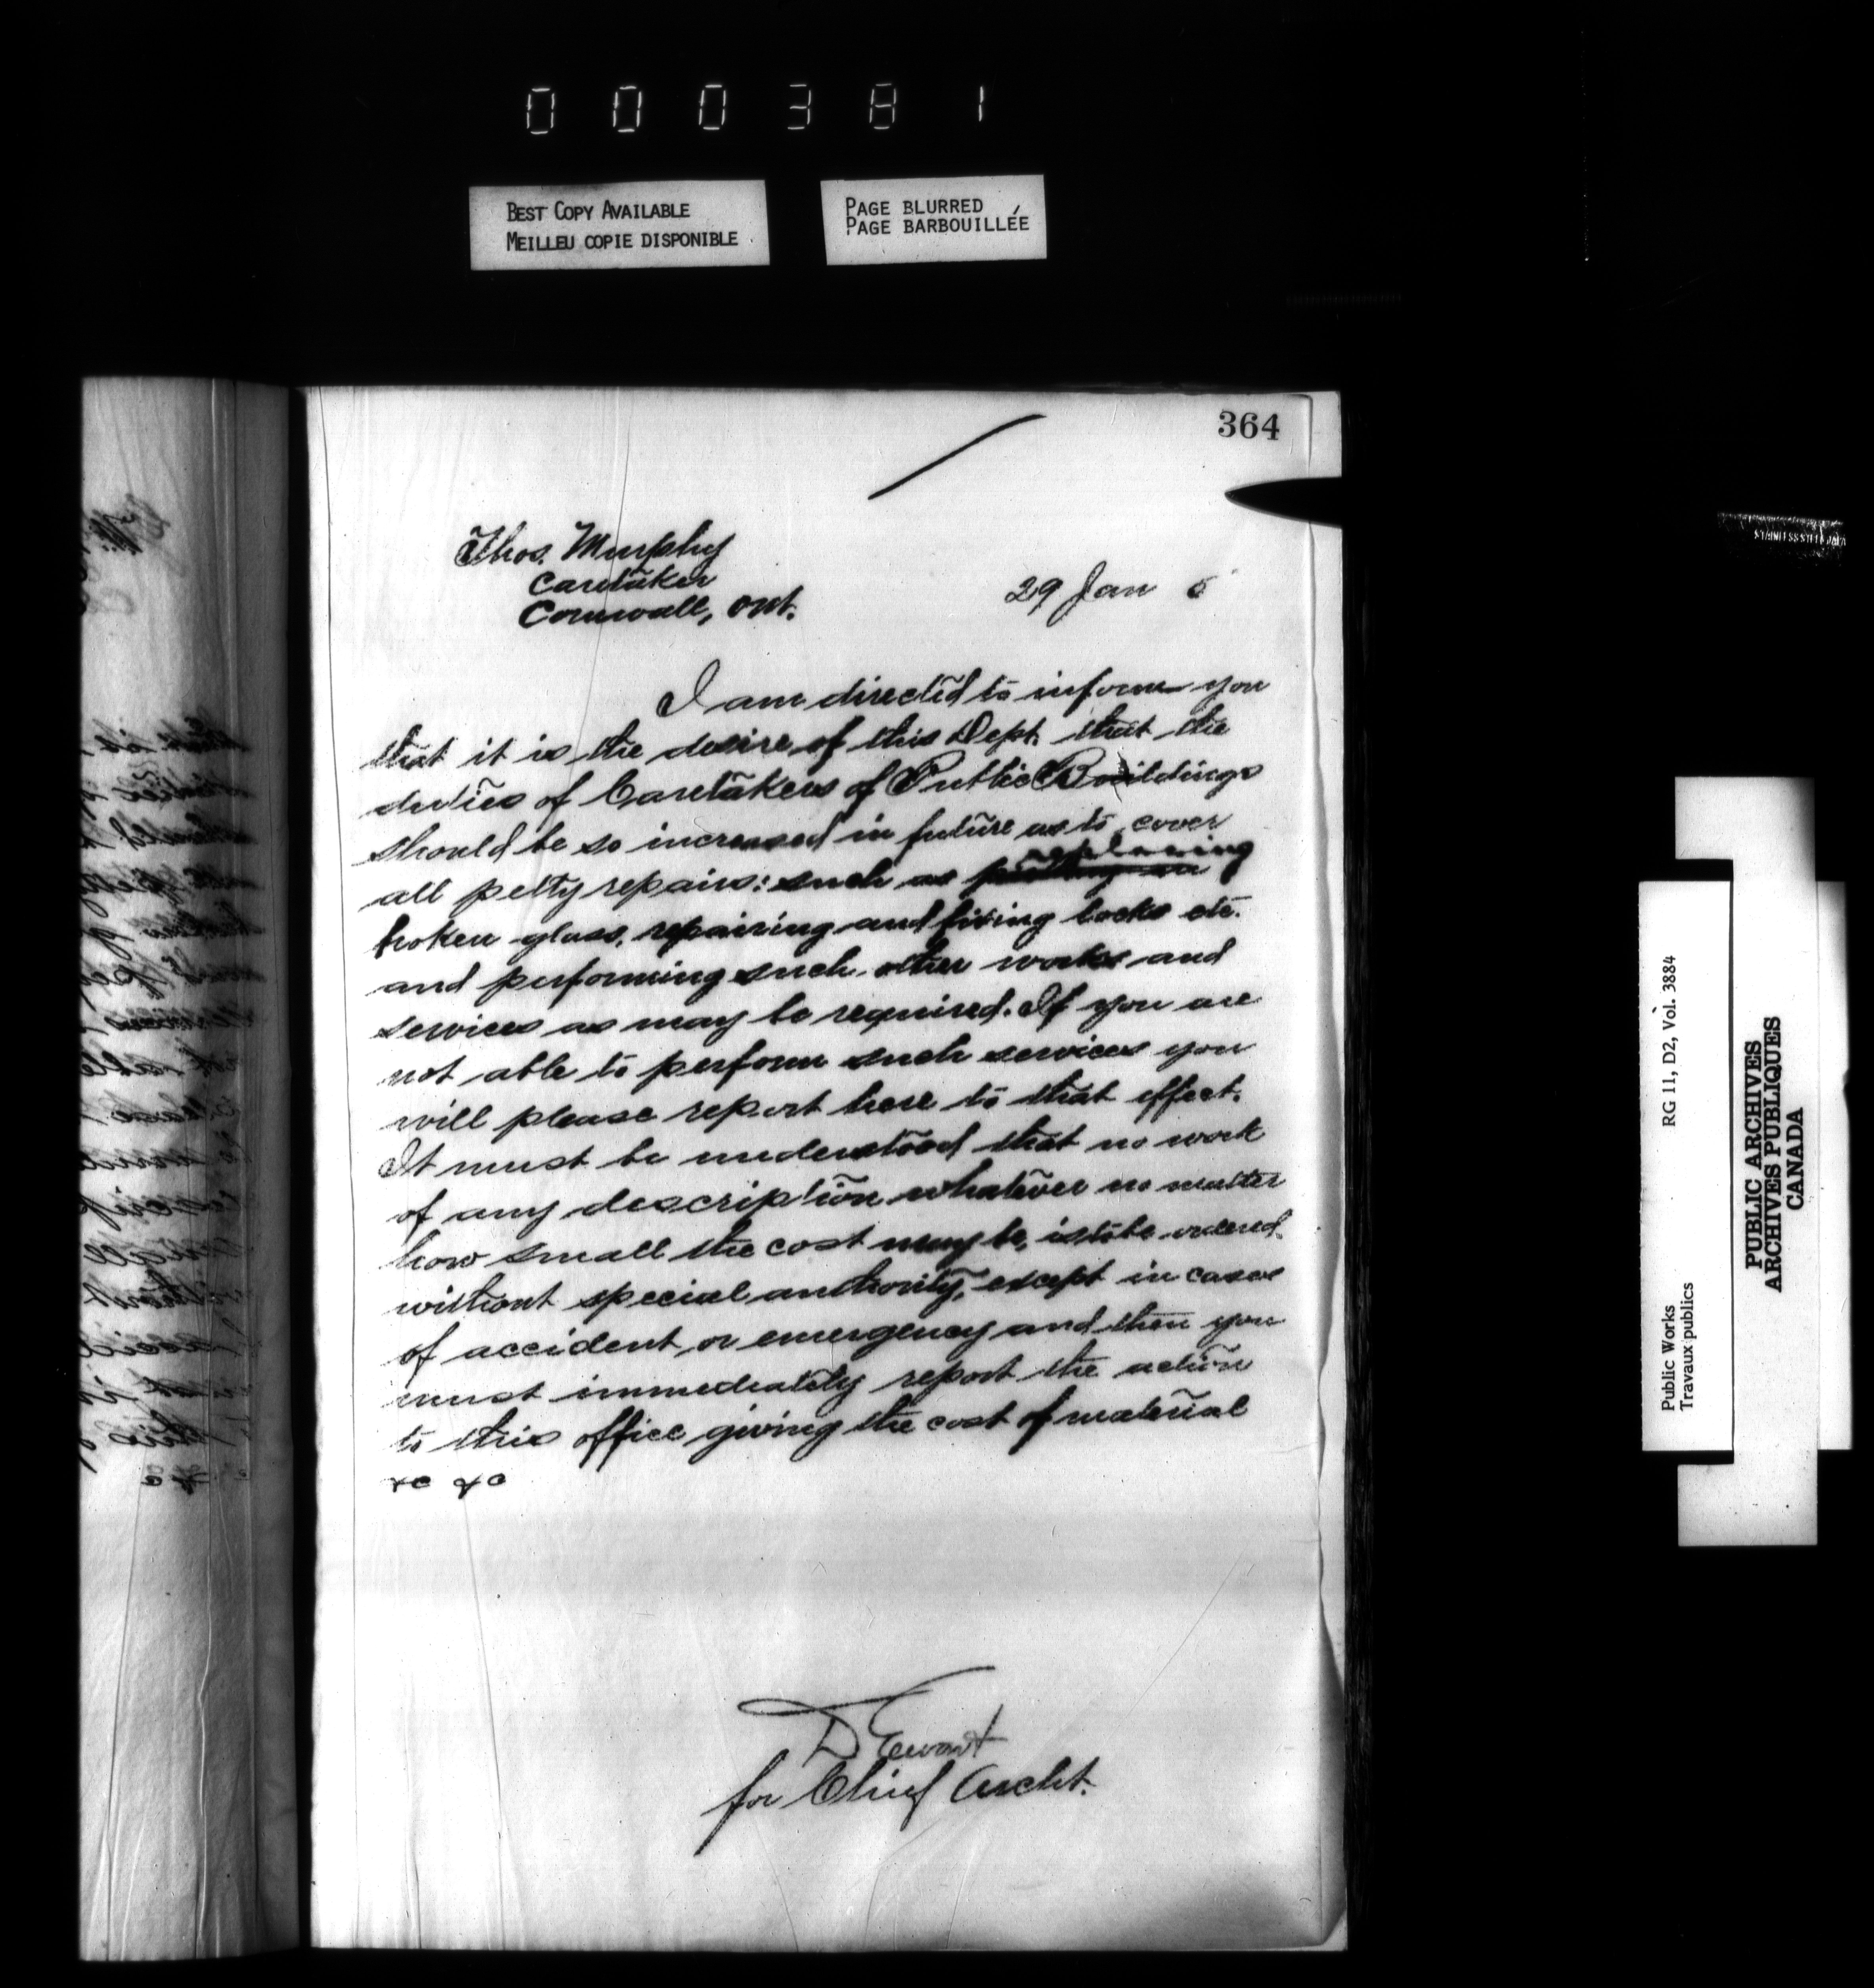 000381
BEST COPY AVAILABLE
MEILLEU COPIE DISPONIBLE
PAGE BLURRED
PAGE BARBOUILLÉE
364
Thos. Murphy
Caretaker
Cornwall, Ont.
29 Jan 6
I am directed to inform you
that it is the desire of this Dept. that the
duties of Caretakers of Public Buildings
should be so increased in future as to cover
all petty repairs: such as replacing
broken glass, repairing and fixing locks etc.
and performing such other works and
services as may be required. If you are
not able to perform such services you
will please report here to that effect.
It must be understood that no work
of any description whatever no matter
how small the cost may be, is to be ordered
without special authority, except in cases
of accident or emergency and then you
must immediately report the action
to this office giving the cost of material
&c &c
D Ewart
for Chief Archt.
Public Works
Travaux publics
RG 11, D2, Vol. 3884
PUBLIC ARCHIVES
ARCHIVES PUBLIQUES
CANADA